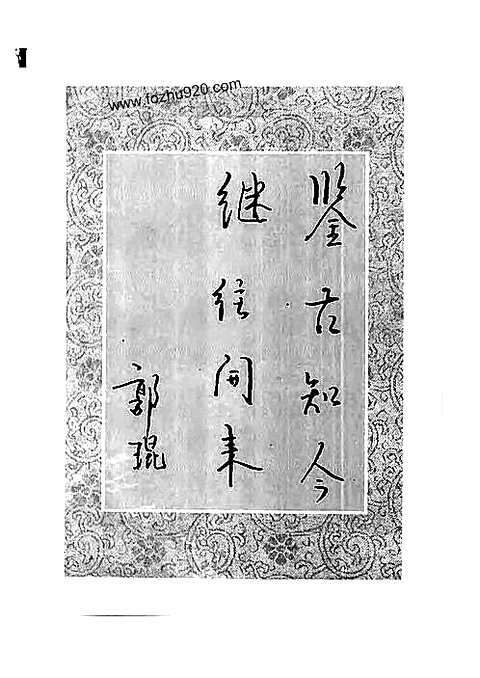 www.fozhu920.com
鉴古知今
继往开来
郭琨